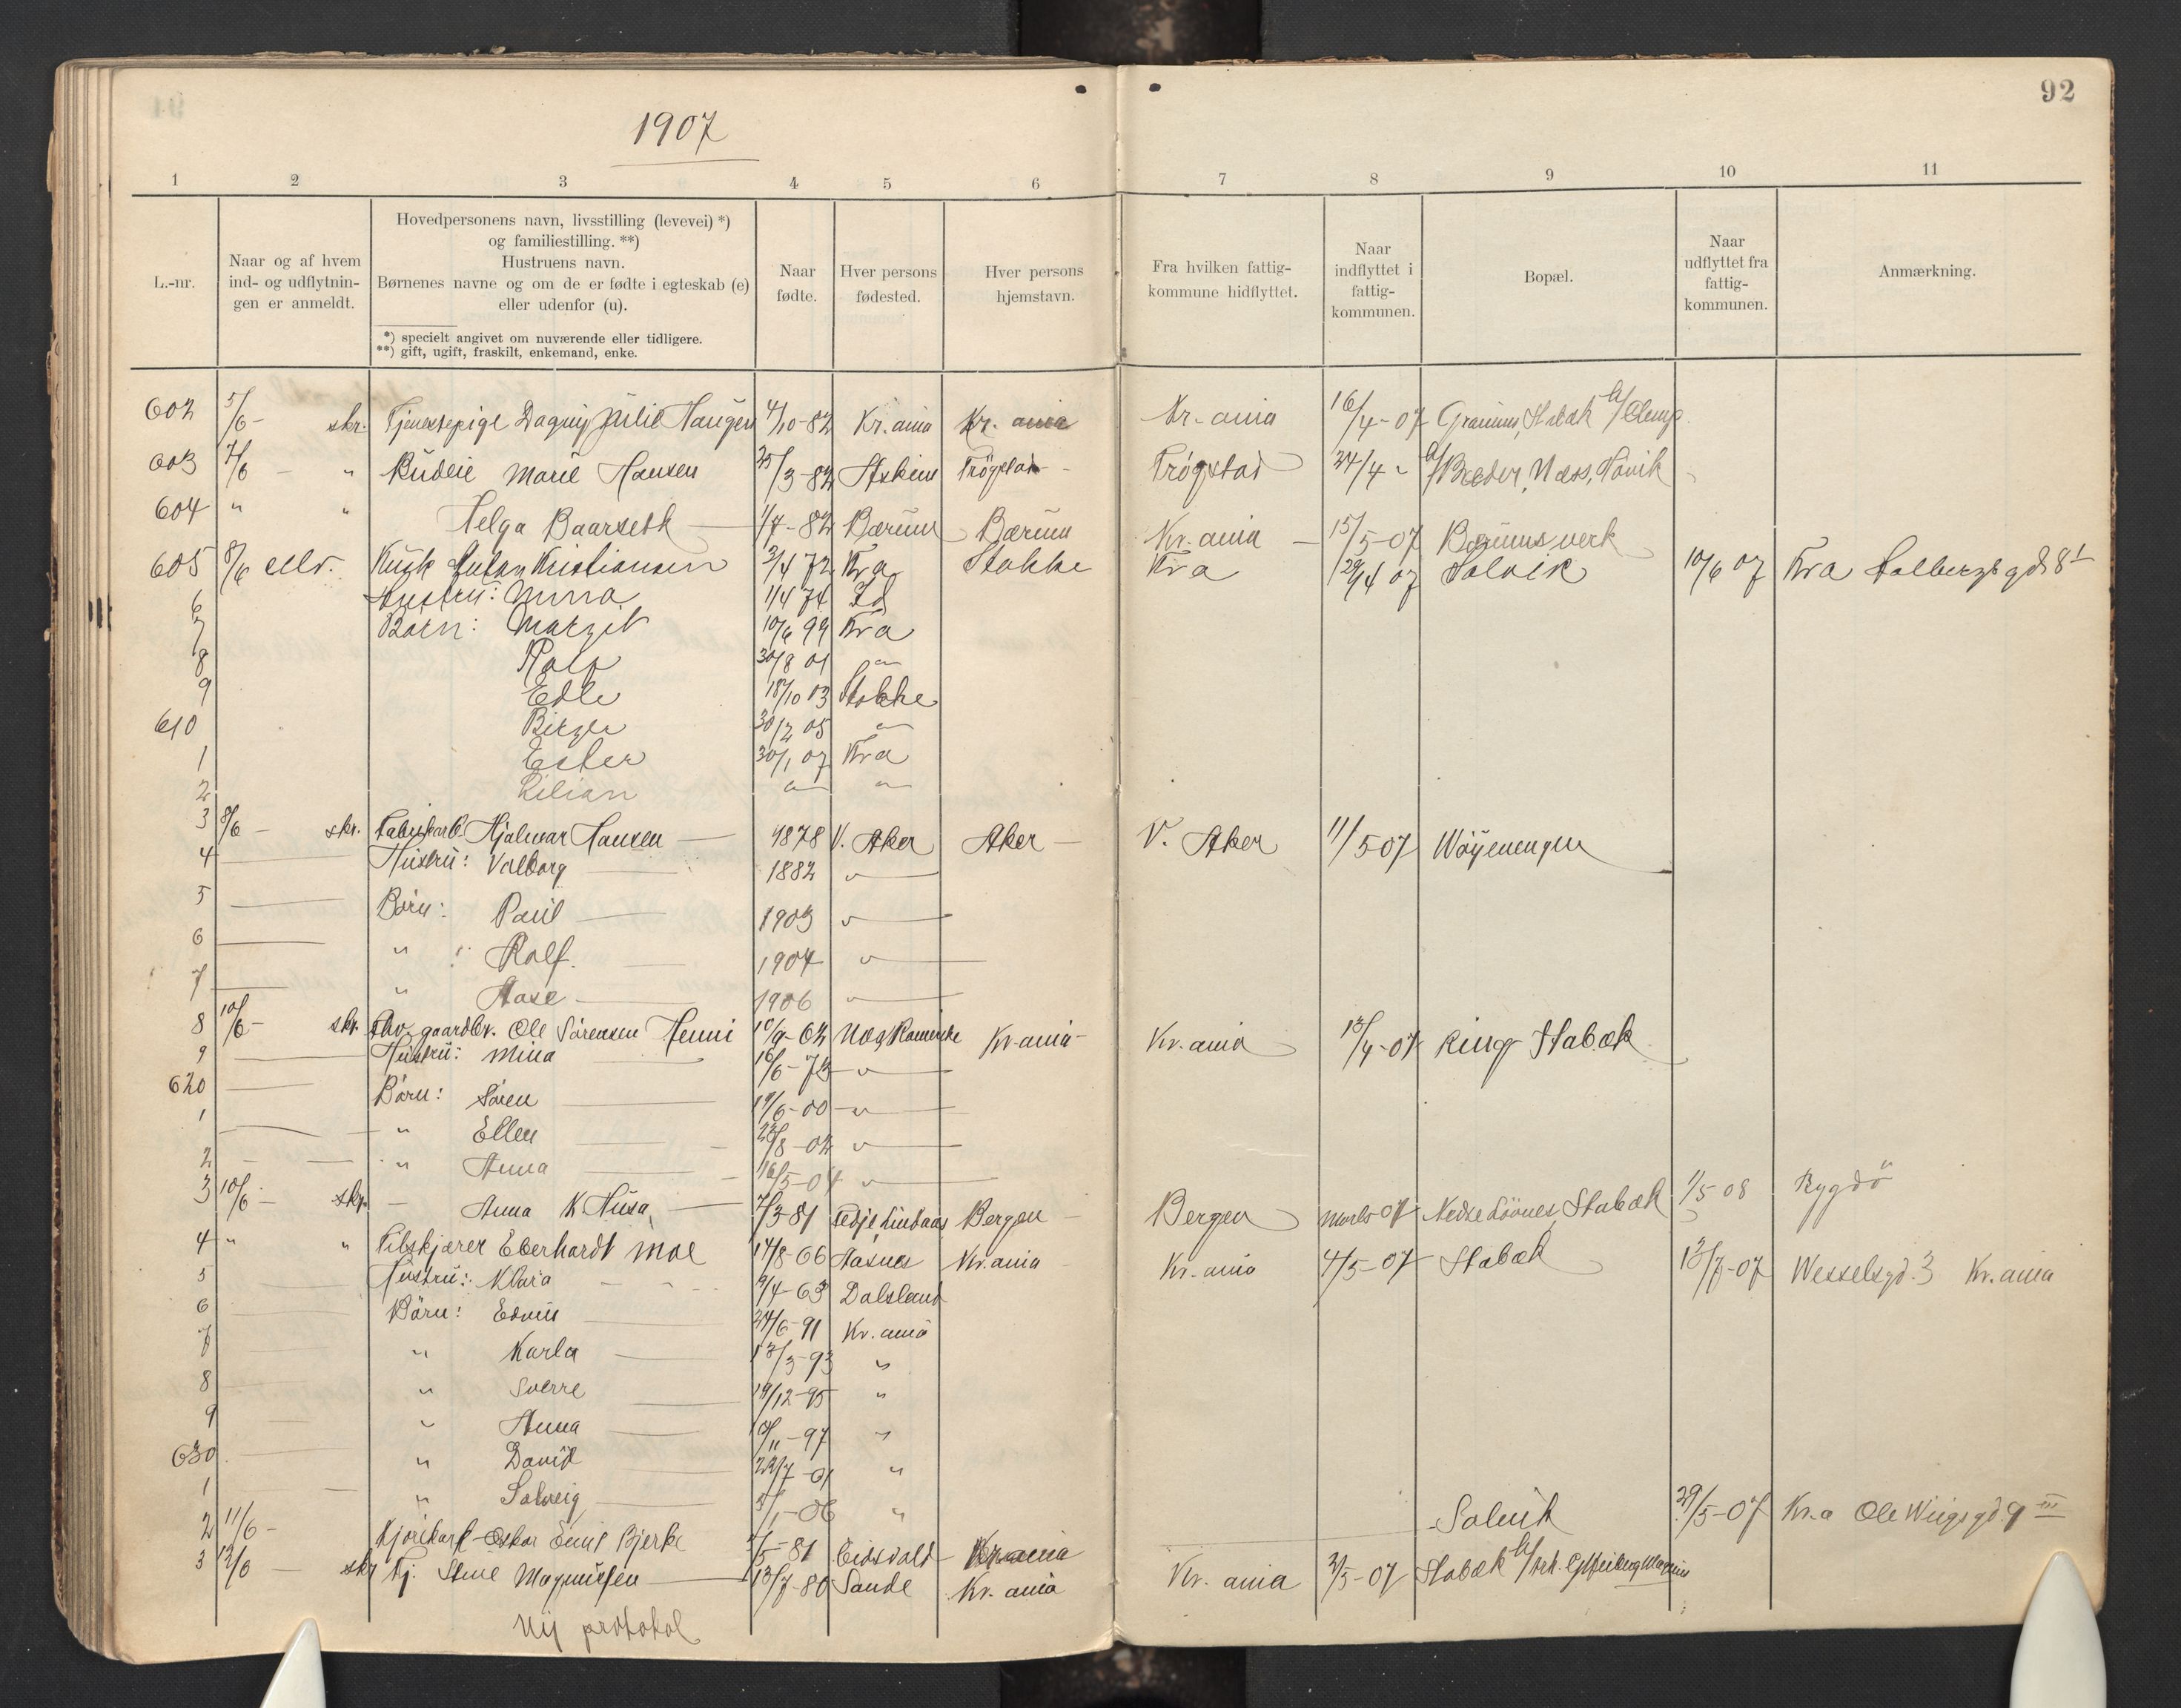 92
1907
1 2 3 4 5 6 7 8 9 10 11
L.-nr.
Naar og af hvem ind- og udflytnin- gen er anmeldt.
Hovedpersonens navn, livsstilling (levevei) *) og familiestilling. **) Hustruens navn. Børnenes navne og om de er fødte i egteskab (e) eller udenfor (u).
*) specielt angivet om nuværende eller tidligere.
**) gift, ugift, fraskilt, enkemand, enke.
Naar fødte.
Hver persons fødested.
Hver persons hjemstavn.
Fra hvilken fattig- kommune hidflyttet.
Naar indflyttet i fattig- kommunen.
Bopæl.
Naar udflyttet fra fattig- kommunen.
Anmærkning.
602 5/6 - skr. Tjenestepige Dagny Julie Haugen 4/10-82 Kr.ania Kr. ania Kr-ania 16/4-07 Stabæk
603 7/6 - " Budeie Marie Hansen 25/3-82 Askim Trögstad - Trögstad 24/4 - Næss, Hövik
604 " " Helga Baarseth 1/7-82 Bærum Bærum Kr.ania 15/5-07 Bærumsverk
605 8/6 Kusk Kristiansen 2/4 72 Kra Stokke Kra 29/4 07 Solvik 10/6 07 Kra
6 Hustru: Anna 1/4 74
7 Børn: Margit 10/6 99 Kra
8 Rolf 30/8 01 "
9 Edle 18/10 03 Stokke
610 Birger 30/2 05 "
1 Ester 30/1 07 Kra
2 Lilian " "
3 8/6 - skr. Fabrikarb. Hjalmar Hansen 1878 V. Aker Aker - V. Aker 11/5 07 Wöyenengen
4 Hustru: Valborg 1882 "
5 Børn: Paul 1903 "
6 " Rolf. 1904 "
7 " Aase 1906 "
8 10/6 - skr. Ole Sørensen Henni 10/9-62 Kr.ania- Kr.ania 13/4-07 Ring Stabæk
9 Hustru: Mina 16/6-73 "
620 Børn: Søren 19/6-00 "
1 " Ellen 22/8-02 "
2 " Anna 16/5-04 "
3 10/6 - skr. - Anna K Husa 7/3-81 Bergen Bergen Marts 07 Stabæk 1/5-08 Bygdö
4 " " Filskjærer Eberhardt Moe 14/8-66 Aasnes Kr.ania Kr-ania 4/5-07 Stabæk 13/7-07 Wesselsgd.3 Kr.ania
5 Hustru: Klara 9/4-63 Dalsland
6 Børn: Edvin 24/6-91 Kr.ania
7 " Karla 13/3-93 "
8 " Sverre 19/12-95 "
9 " Anna 10/11-97 "
630 " David 22/7-01 "
1 " Solveig 5/1-06 "
2 11/6 - Kjörekarl - Oskar Emil Bjerke 2/5-81 Eidsvold Kr.ania Solvik 29/5-07 Kr.a Ole Wiigsgd.9 III
3 12/6 - skr Tj. Magnussen 13/7-80 Sande Kr. ania Kr. ania 2/5-07 Stabæk
Ny protokol